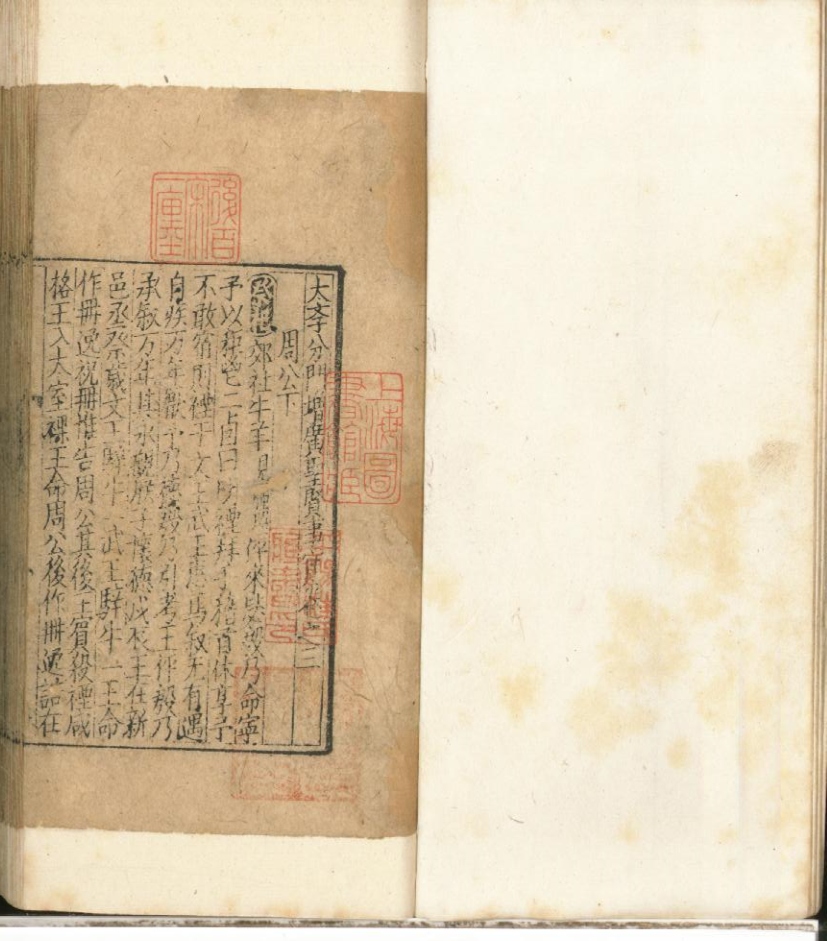 後百宋一廛
上海圖書館藏
太斈分門增廣聖賢事實卷之三
周公下
郊社牛羊見伻來毖殷乃命寧
予以秬鬯二卣曰明禋拜手稽首休享予
不敢宿則禋于文王武王惠篤叙无有遘
自疾万年猒于乃德殷乃引考王伻殷乃
承叙万年其永觀朕子懷德戊辰王在新
邑烝祭歲文王騂牛一武王騂牛一王命
作冊逸祝冊惟告周公其後王賓殺禋咸
格王入太室祼王命周公後作冊逸誥在